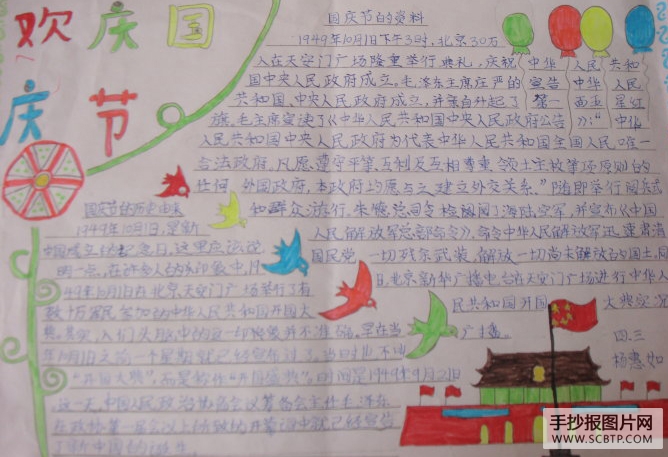 欢庆国
庆节
国庆节的资料
1949年10月1日下午3时,北京30万
人在天安门广场隆重举行典礼,庆祝 中华 人民 共和
国中央人民政府成立。毛泽东主席庄严的 宣告 中华 人民
共和国、中央人民政府成立,并亲自升起了 第一 面五 星红
旗。毛主席宣读了《中华人民共和国中央人民政府公告 》:“ 中华
人民共和国中央人民政府为代表中华人民共和国全国人民唯一
合法政府,凡愿遵守平等、互利及互相尊重领土主权等项原则的
任何 外国政府,本政府均愿与之建立外交关系。”随即举行阅兵式
和群众游行,朱德总司令检阅了海陆空军,并宣布《中国
人民解放军总部命令》,命令中华人民解放军迅速肃清
国民党 一切残余武装,解放一切尚未解放的国土,同
日,北京新华广播电台在天安门广场进行中华人
民共和国开国 大典实况
广播。
国庆节的历史由来
1949年10月1日,是新
中国成立的纪念日,这里应该说
明一点,在许多人的印象中,19
49年10月1日在北京天安门广场举行了有
数十万军民参加的中华人民共和国开国大
典。其实,人们头脑中的这一印象并不准确。早在当
年10月1日之前一个星期就已经宣布过了。当时也不叫
“开国大典”,而是称作“开国盛典”。时间是1949年9月21日
这一天,中国人民政治协商会议筹备会主任毛泽东
在政协第一届会议上所致的开幕词中就已经宣告
了新中国的诞生。
四.三
杨惠如
手抄报图片网
WWW.SCBTP.COM